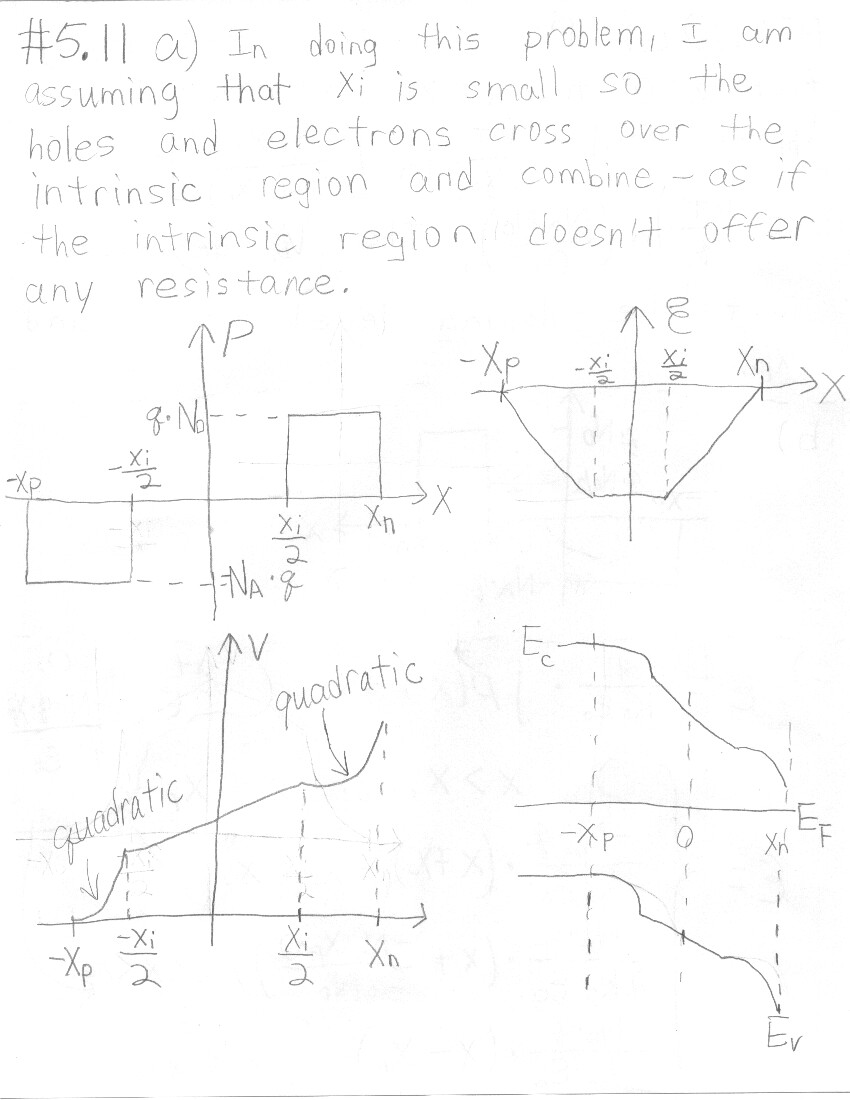 #5.11 a) In doing this problem, I am
assuming that xi is small so the
holes and electrons cross over the
intrinsic region and combine - as if
the intrinsic region doesn't offer
any resistance.
ρ
q·ND
-xp
-xi/2
xi/2
xn
X
-NA·q
ℰ
-xp
-xi/2
xi/2
xn
X
V
quadratic
quadratic
-xp
-xi/2
xi/2
xn
Ec
EF
-xp
0
xn
Ev